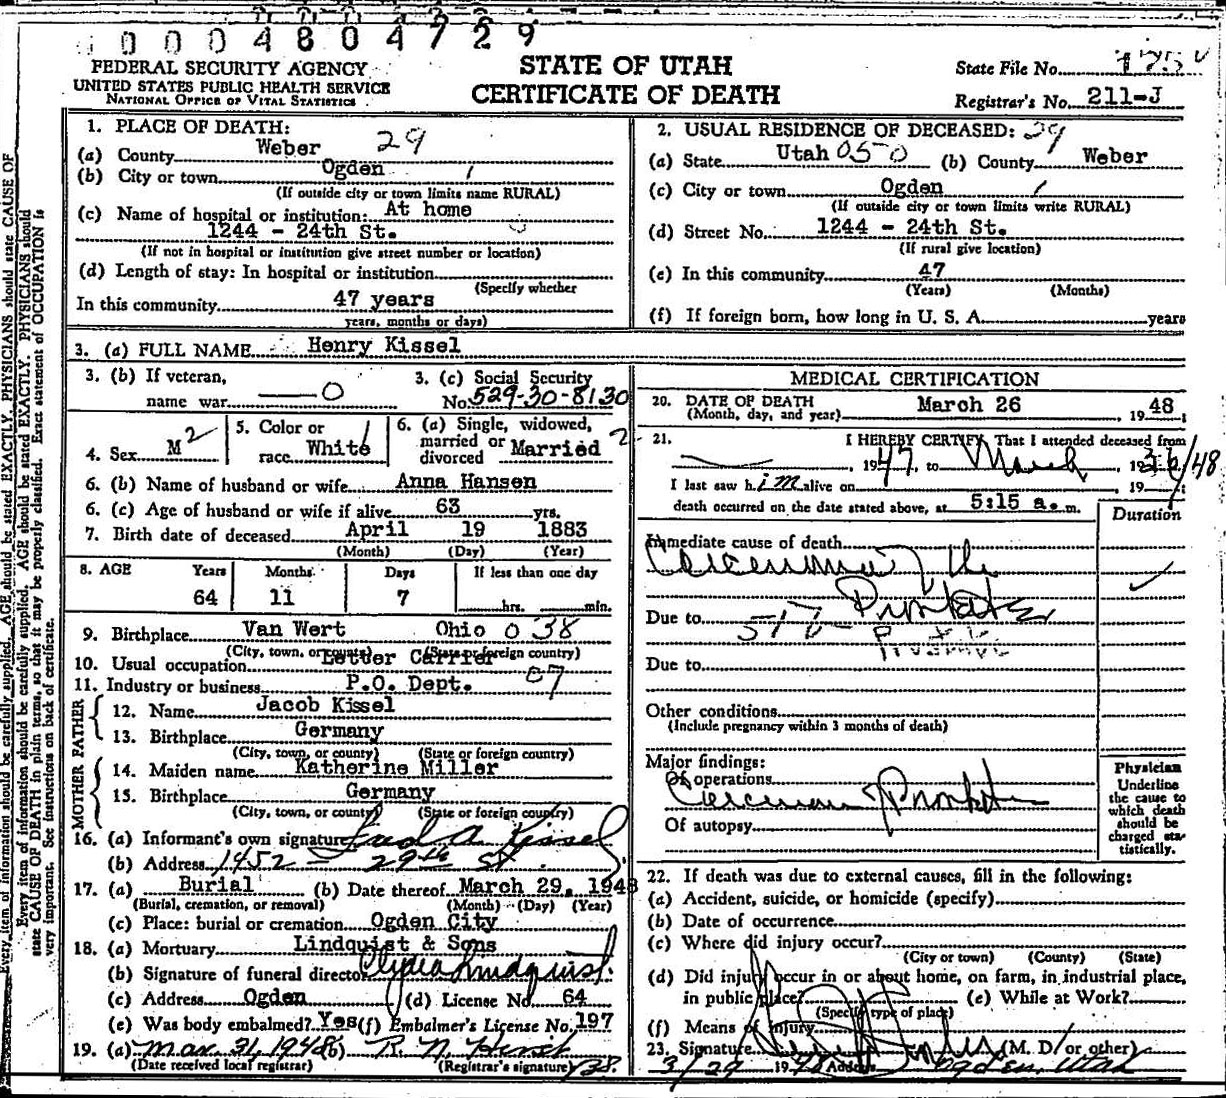 0 0 0 4 8 0 4 7 2 9
FEDERAL SECURITY AGENCY
UNITED STATES PUBLIC HEALTH SERVICE
NATIONAL OFFICE OF VITAL STATISTICS
STATE OF UTAH
CERTIFICATE OF DEATH
State File No.
Registrar's No. 211-J
1. PLACE OF DEATH: 29
(a) County Weber
(b) City or town Ogden
(If outside city or town limits name RURAL)
(c) Name of hospital or institution: At home
1244 - 24th St.
(If not in hospital or institution give street number or location)
(d) Length of stay: In hospital or institution
(Specify whether
In this community 47 years
years, months or days)
2. USUAL RESIDENCE OF DECEASED: 29
(a) State Utah 050 (b) County Weber
(c) City or town Ogden
(If outside city or town limits write RURAL)
(d) Street No. 1244 - 24th St.
(If rural give location)
(e) In this community 47
(Years) (Months)
(f) If foreign born, how long in U. S. A. years
3. (a) FULL NAME Henry Kissel
3. (b) If veteran,
name war 0
3. (c) Social Security
No. 529-30-8130
4. Sex M 2
5. Color or
race White
6. (a) Single, widowed,
married or
divorced Married 2
6. (b) Name of husband or wife Anna Hansen
6. (c) Age of husband or wife if alive 63 yrs.
7. Birth date of deceased April 19 1883
(Month) (Day) (Year)
8. AGE Years Months Days If less than one day
64 11 7 hrs. min.
9. Birthplace Van Wert Ohio 038
(City, town, or county) (State or foreign country)
10. Usual occupation Letter Carrier
11. Industry or business P.O. Dept. 07
FATHER
12. Name Jacob Kissel
13. Birthplace Germany
(City, town, or county) (State or foreign country)
MOTHER
14. Maiden name Katherine Miller
15. Birthplace Germany
(City, town, or county) (State or foreign country)
16. (a) Informant's own signature Fred A. Kissel
(b) Address 1452 - 29th St
17. (a) Burial (b) Date thereof March 29, 1948
(Burial, cremation, or removal) (Month) (Day) (Year)
(c) Place: burial or cremation Ogden City
18. (a) Mortuary Lindquist & Sons
(b) Signature of funeral director Clyde Lindquist
(c) Address Ogden (d) License No. 64
(e) Was body embalmed? Yes (f) Embalmer's License No. 197
19. (a) Mar. 31, 1948 (b) R. N. Hirst
(Date received local registrar) (Registrar's signature)
MEDICAL CERTIFICATION
20. DATE OF DEATH March 26 1948
(Month, day, and year)
21. I HEREBY CERTIFY, That I attended deceased from
, 1947, to March , 19 26/48
I last saw him alive on , 19
death occurred on the date stated above, at 5:15 a. m.
Duration
Immediate cause of death
Carcinoma of the
Prostate
Due to 51
Prostate
Due to
Other conditions
(Include pregnancy within 3 months of death)
Major findings:
Of operations
Carcinoma Prostate
Of autopsy
Physician
Underline
the cause to
which death
should be
charged sta-
tistically.
22. If death was due to external causes, fill in the following:
(a) Accident, suicide, or homicide (specify)
(b) Date of occurrence
(c) Where did injury occur?
(City or town) (County) (State)
(d) Did injury occur in or about home, on farm, in industrial place,
in public place? (e) While at Work?
(Specify type of place)
(f) Means of injury
23. Signature (M. D. or other)
3/29 1948 Address Ogden, Utah
Every item of information should be carefully supplied. AGE should be stated EXACTLY. PHYSICIANS should state CAUSE OF
Every item of information should be carefully supplied. AGE should be stated EXACTLY. PHYSICIANS should
state CAUSE OF DEATH in plain terms, so that it may be properly classified. Exact statement of OCCUPATION is
very important. See instructions on back of certificate.